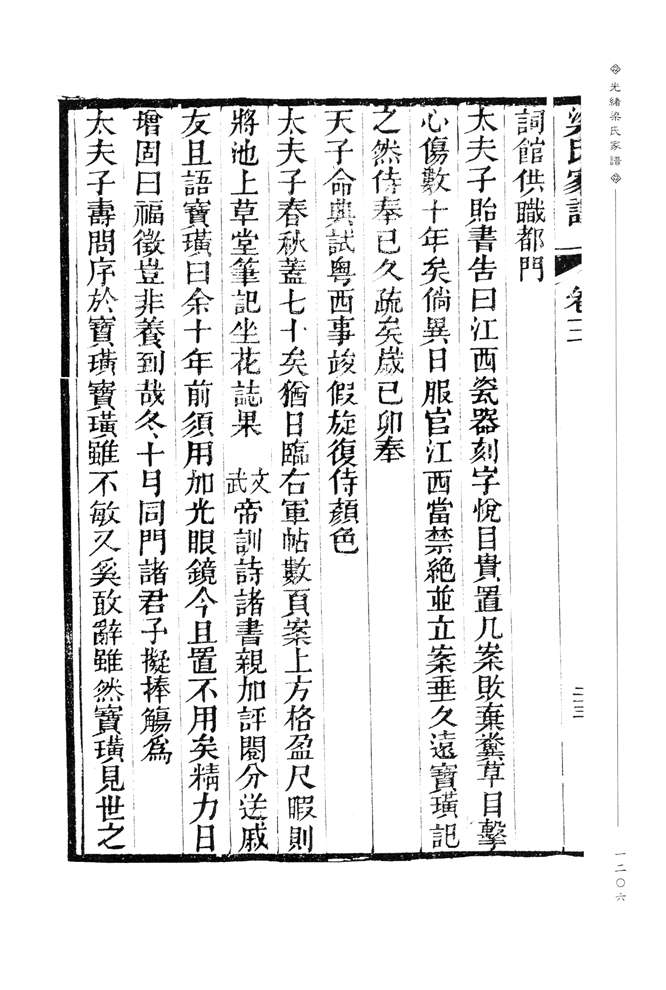 光緒梁氏家譜
一二〇六
梁氏家譜 卷二
二三
詞館供職都門
太夫子貽書告曰江西瓷器刻字悅目貴置几案敗棄糞草目擊
心傷數十年矣倘異日服官江西當禁絕並立案垂久遠寶璜記
之然侍奉已久疏矣歲己卯奉
天子命典試粵西事竣假旋復侍顏色
太夫子春秋蓋七十矣猶日臨右軍帖數頁案上方格盈尺暇則
將池上草堂筆記坐花誌果 文武帝訓詩諸書親加評閱分送戚
友且語寶璜曰余十年前須用加光眼鏡今且置不用矣精力日
增固曰福徵豈非養到哉冬十月同門諸君子擬捧觴為
太夫子壽問序於寶璜寶璜雖不敏又奚敢辭雖然寶璜見世之